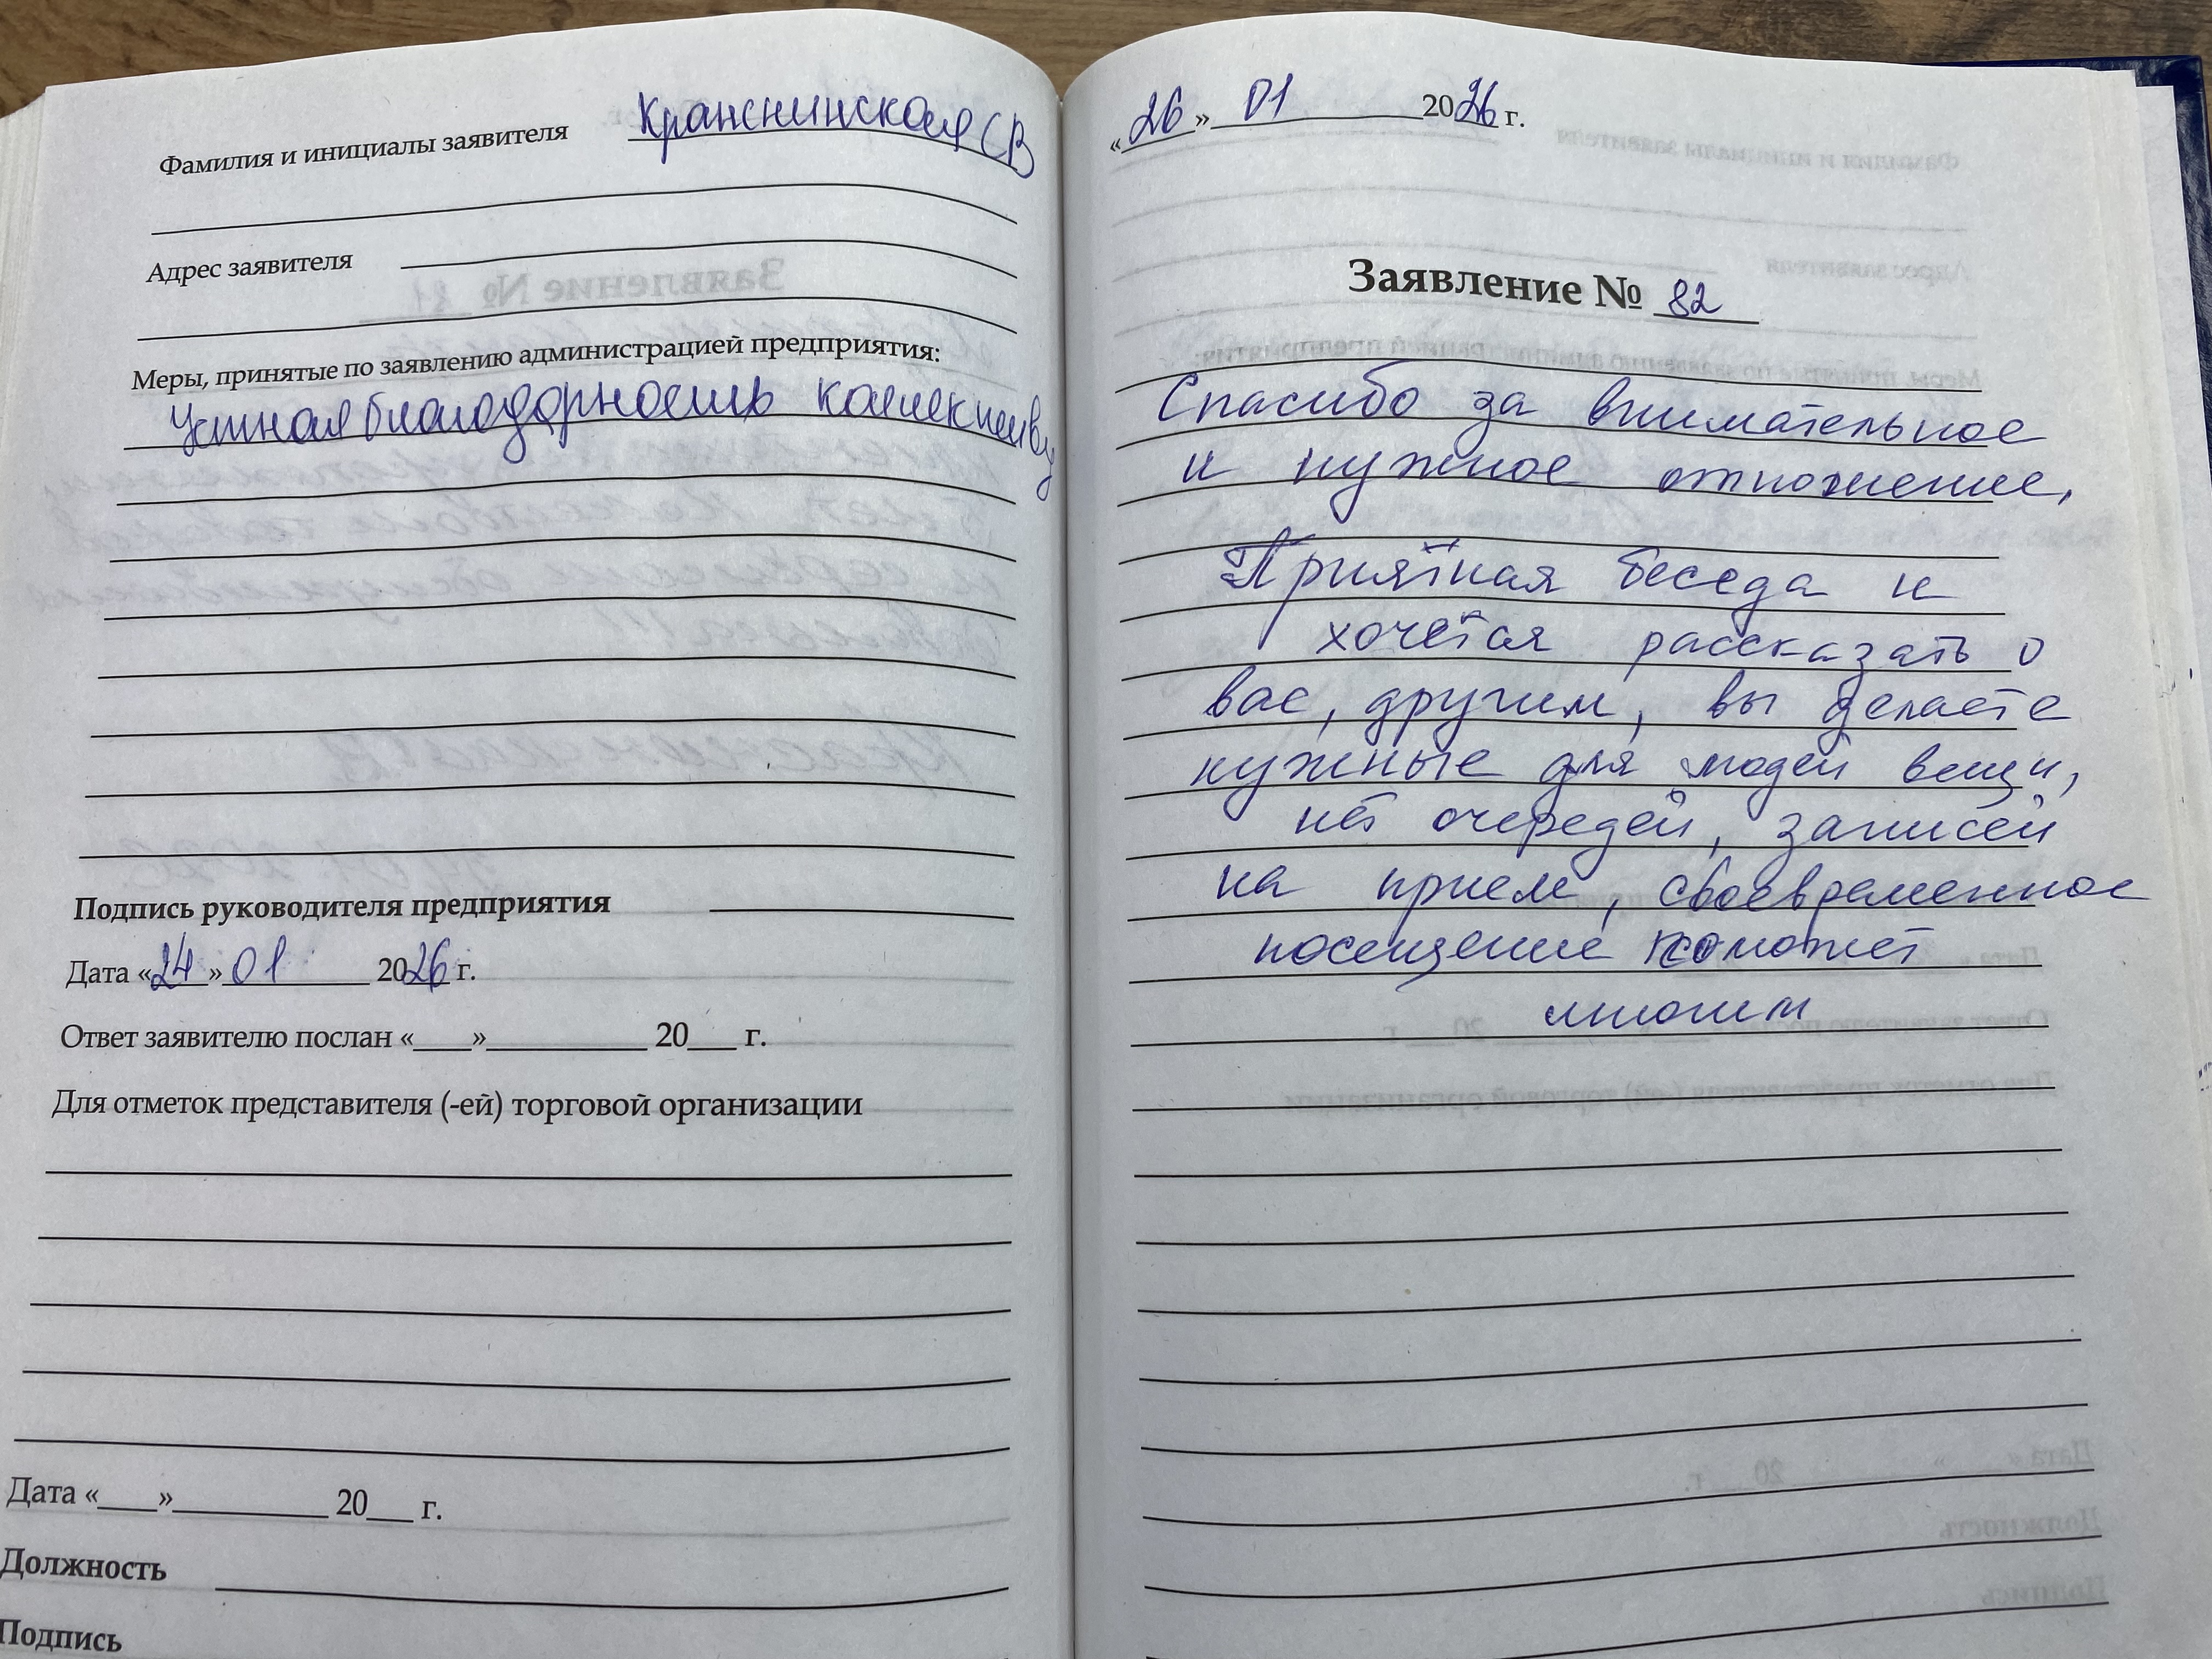 Фамилия и инициалы заявителя Кранснинская СВ
Адрес заявителя
Меры, принятые по заявлению администрацией предприятия:
Устная благодарность коллективу
Подпись руководителя предприятия
Дата «24» 01 2026 г.
Ответ заявителю послан «___»__________ 20___ г.
Для отметок представителя (-ей) торговой организации
Дата «___»__________ 20___ г.
Должность
Подпись
«26» 01 2026 г.
Заявление № 82
Спасибо за внимательное
и нужное отношение,
Приятная беседа и
хочется рассказать о
вас, другим, вы делаете
нужные для людей вещи,
нет очередей, записей
на прием, своевременное
посещение поможет
многим